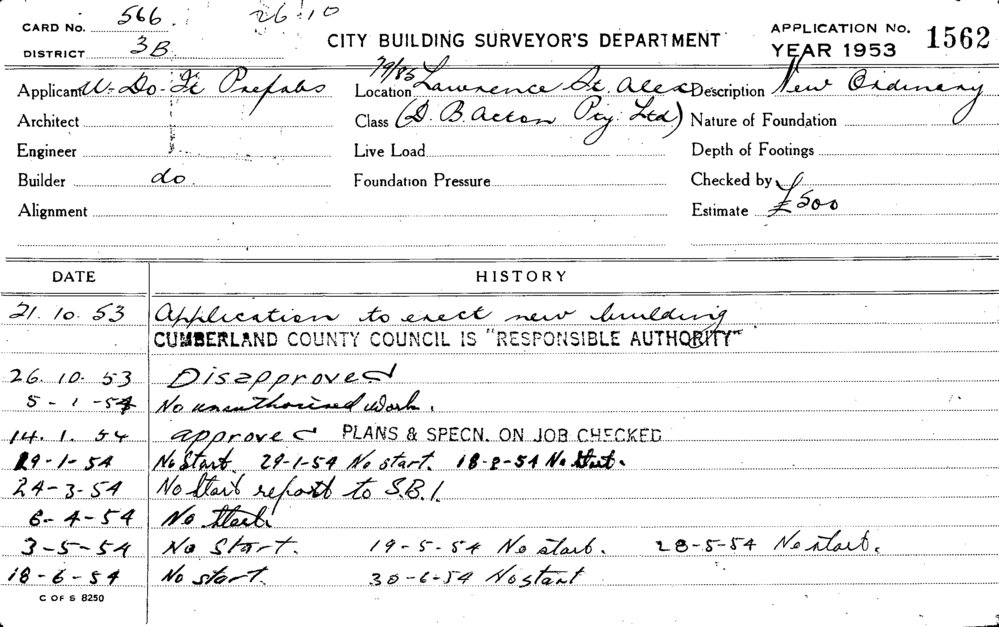 CARD No. 566. 26.10
DISTRICT 3B
CITY BUILDING SURVEYOR'S DEPARTMENT
APPLICATION No. 1562
YEAR 1953
Applicant U-Do-It Prefabs
Location 79/85 Lawrence St. Alex
Description New Ordinary
Architect
Class (D. B. Acton Pty. Ltd)
Nature of Foundation
Engineer
Live Load
Depth of Footings
Builder do.
Foundation Pressure
Checked by
Alignment
Estimate £500
DATE HISTORY
21. 10. 53 Application to erect new building
CUMBERLAND COUNTY COUNCIL IS "RESPONSIBLE AUTHORITY"
26. 10. 53 Disapproved
5-1-54 No unauthorised work.
14. 1. 54 approved PLANS & SPECN. ON JOB CHECKED
29-1-54 No Start. 29-1-54 No start. 18-2-54 No Start.
24-3-54 No Start report to S.B.I.
6-4-54 No Start.
3-5-54 No Start. 19-5-54 No start. 28-5-54 No start.
18-6-54 No start. 30-6-54 No start
C OF S 8250